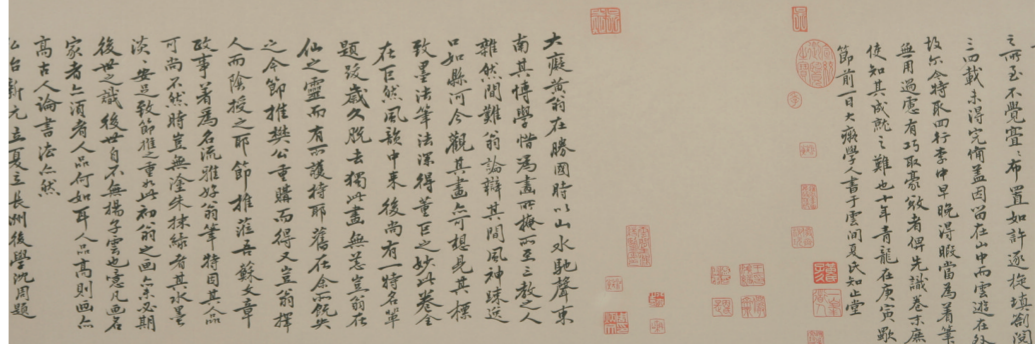 之所至不覺亹亹布置如許逐旋填劄閱
三四載未得完備蓋因留在山中而雲遊在外
故尔今特取回行李中早晚得暇當為著筆
無用過慮有巧取豪敓者俾先識卷末庶
使知其成就之難也十年青龍在庚寅歜
節前一日大癡學人書于雲間夏氏知止堂
大癡黃翁在勝國時以山水馳聲東
南其博學惜為畫所掩所至三教之人
雜然問難翁論辯其間風神竦逸
口如懸河今觀其畫亦可想見其標
致墨法筆法深得董巨之妙此卷全
在巨然風韻中來後尚有一時名輩
題跋歲久脫去獨此畫無恙豈翁在
仙之靈而有所護持耶舊在余所既失
之今節推樊公重購而得又豈翁擇
人而陰授之耶節推蒞吾蘇文章
政事著為名流雅好翁筆特因其人品
可尚不然時豈無塗朱抹綠者其水墨
淡淡安足致節推之重如此初翁之画亦未必期
後世之識後世自不無揚子雲也噫凡画名
家者亦須看人品何如耳人品高則画亦
高古人論書法亦然
弘治新元立夏立長洲後學沈周題